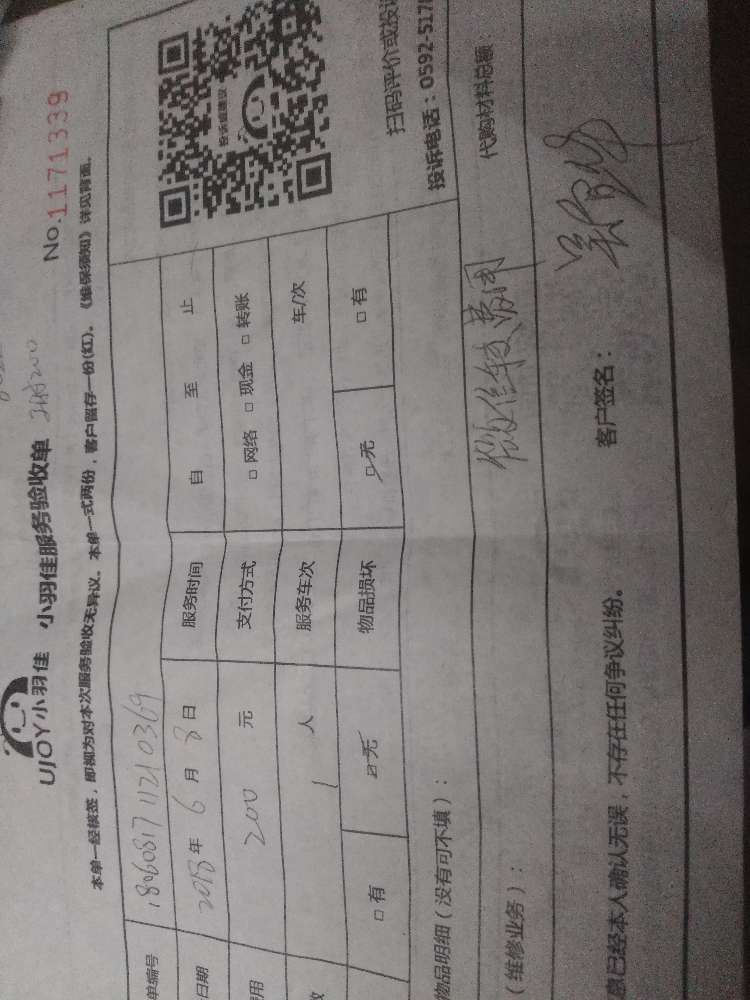 UJOY小羽佳 小羽佳服务验收单
No.1171339
本单一经核签，即视为对本次服务验收无异议。本单一式两份，客户留存一份(红)。《维保须知》详见背面。
单编号 1806081711210369
日期 2018年6月8日 服务时间 自 至 止
费用 200 元 支付方式 □网络 □现金 □转账
数 1 人 服务车次 车/次
□有 □无 物品损坏 □无 □有
投诉或建议
扫码评价或投
投诉电话：0592-517
物品明细（没有可不填）：
（维修业务）： 微信转费用 代购材料总额
息已经本人确认无误，不存在任何争议纠纷。 客户签名：